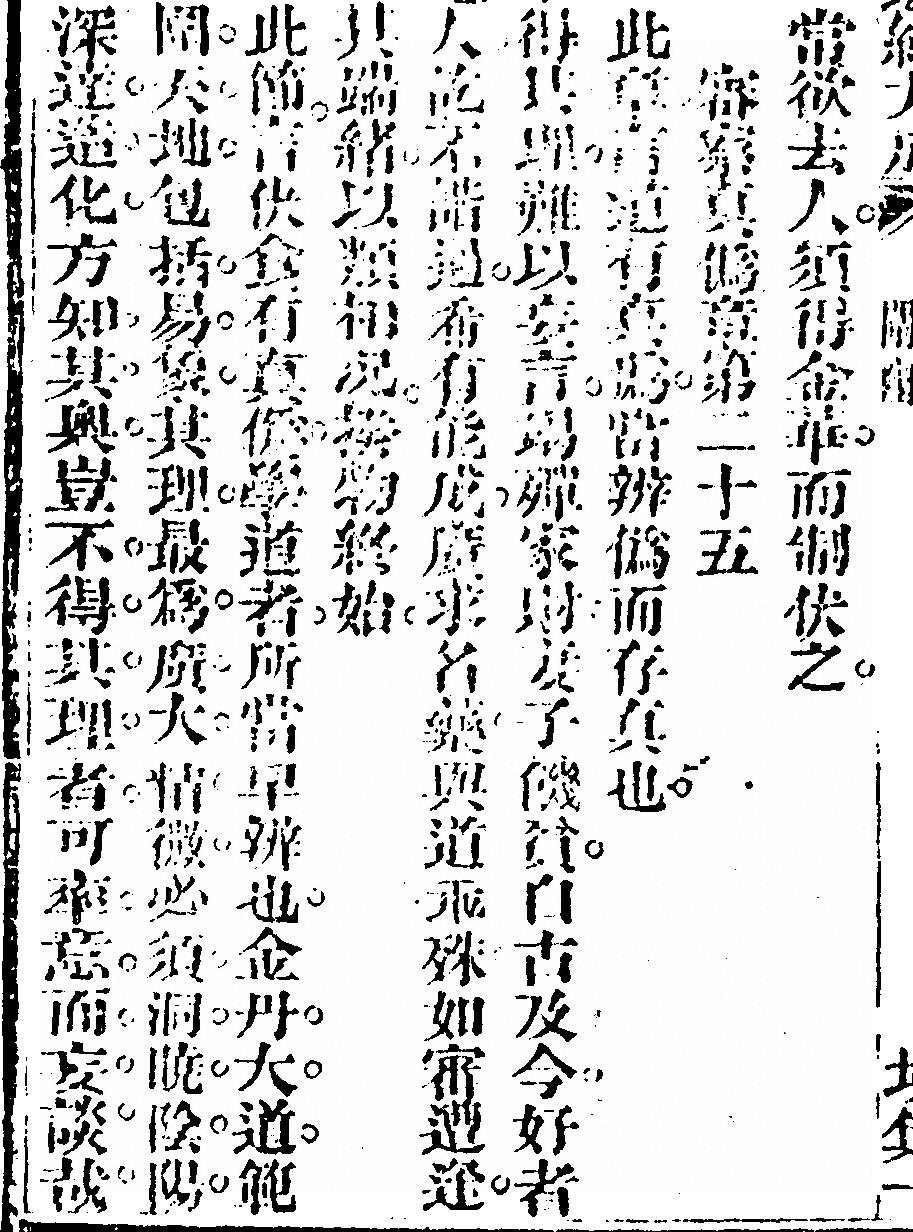 闡幽
當欲去人須得金華而制伏之
審察真偽章第二十五
此章言道有真偽當辨偽而存真也
得其理難以妄言竭殫家財妻子饑貧自古及今好者
人訖不諧遇希有能成廣求名藥與道乖殊如審遭逢
其端緒以類相況揆物終始
此節言伏金有真偽學道者所當早辨也金丹大道範
圍天地包括易象其理最為廣大情微必須洞曉陰陽
深達造化方知其奧豈不得其理者可率意而妄談哉